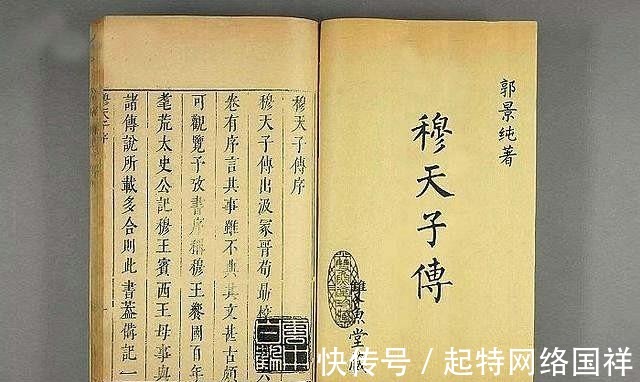 郭景纯著
穆天子傳
穆天子傳序
穆天子傳出汲冢晉荀勖校
卷有序言其事雖不典其文甚古頗
可觀覽予攷書序稱穆王饗國百年
耄荒太史公記穆王賓西王母事與
諸傳說所載多合則此書蓋備記一
快传号／起特网络国祥